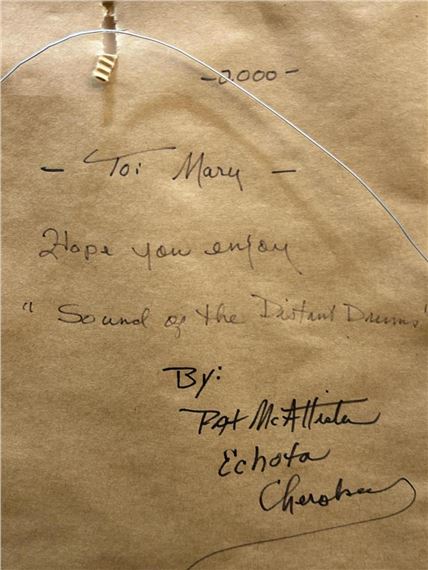 -2000-
- To: Mary -
Hope you enjoy
"Sound of the Distant Drums"
By:
Pat McAllister
Echota
Cherokee